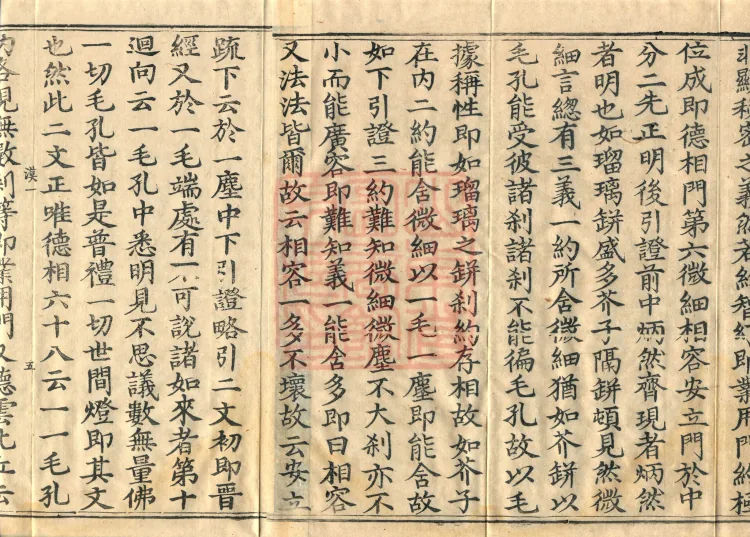 之義然若約智約即業用門約極
位成即德相門第六微細相容安立門於中
分二先正明後引證前中炳然齊現者炳然
者明也如瑠璃缾盛多芥子隔缾頓見然微
細言緫有三義一約所含微細猶如芥缾以
毛孔能受彼諸剎諸剎不能徧毛孔故以毛
據稱性即如瑠璃之缾剎約存相故如芥子
在内二約能含微細以一毛一塵即能含故
如下引證三約難知微細微塵不大剎亦不
小而能廣容即難知義一能含多即曰相容
又法法皆爾故云相容一多不壞故云安立
䟽下云於一塵中下引證略引二文初即晉
經又於一毛端處有不可說諸如來者第十
迴向云一毛孔中悉明見不思議數無量佛
一切毛孔皆如是普禮一切世間燈即其文
也然此二文正唯德相六十八云一一毛孔
漠一 五
内各見無數剎等即業用門又德雲比丘云